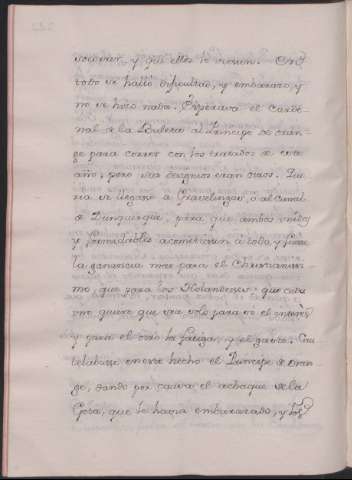 y que ellos le
todo se halló dificultad, y embarazo, y
no se hizo nada. Esperava el Carde-
nal de la Valeta al Principe de Oran-
ge para correr con los tratados de este
año, pero sus designios eran otros. Que-
ria se llegase a Gravelingas, o al Canal
de Dunquerque, para que ambos
y formidables acometiesen a toda, y fuese
la ganancia mas para el Christianisi-
mo, que para los Holandeses: que cada
uno quiere que sea solo para se el interes
y para el otro la fatiga, y el gasto. Cau-
telabasse en este hecho el Principe de Oran-
ge, dando por causa el achaque de la
Gota, que le havia embarazado, y los